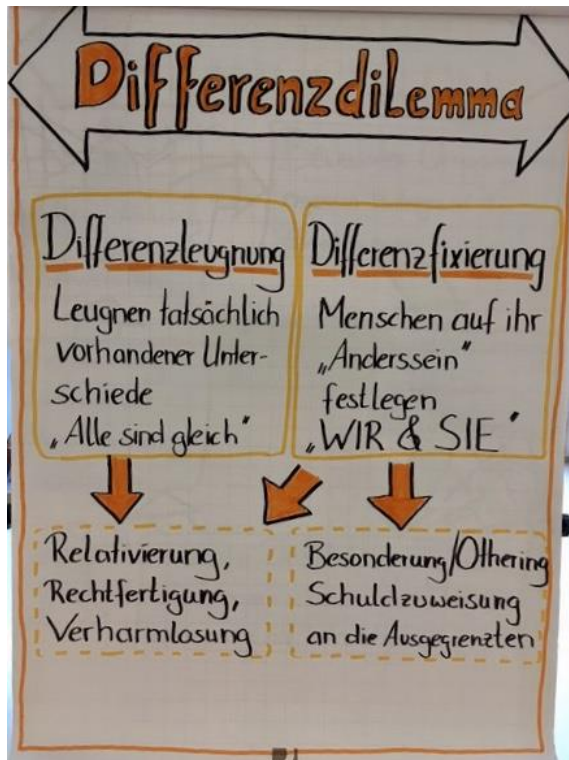 Differenzdilemma
Differenzleugnung
Leugnen tatsächlich
vorhandener Unter-
schiede
„Alle sind gleich"
Differenzfixierung
Menschen auf ihr
„Anderssein"
festlegen
„WIR & SIE"
Relativierung,
Rechtfertigung,
Verharmlosung
Besonderung/Othering
Schuldzuweisung
an die Ausgegrenzten